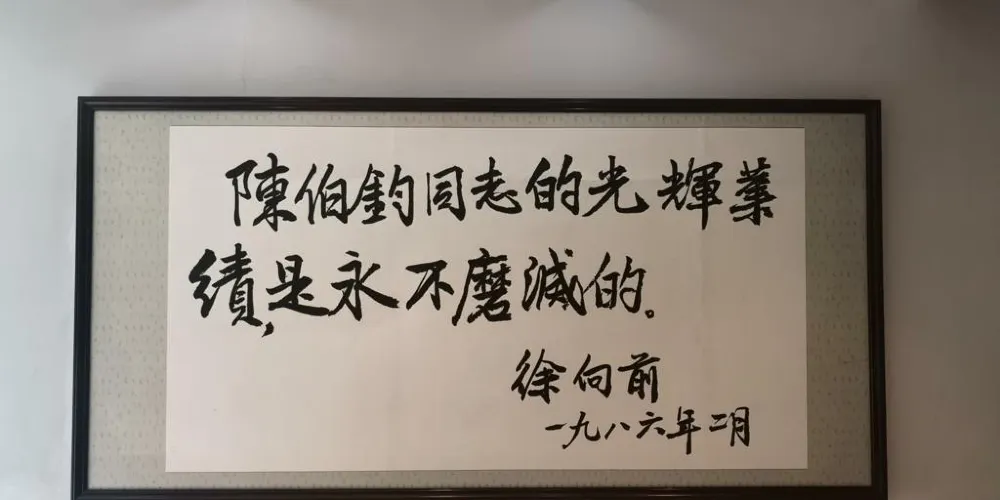 陳伯鈞同志的光輝業
績,是永不磨滅的。
徐向前
一九八六年二月